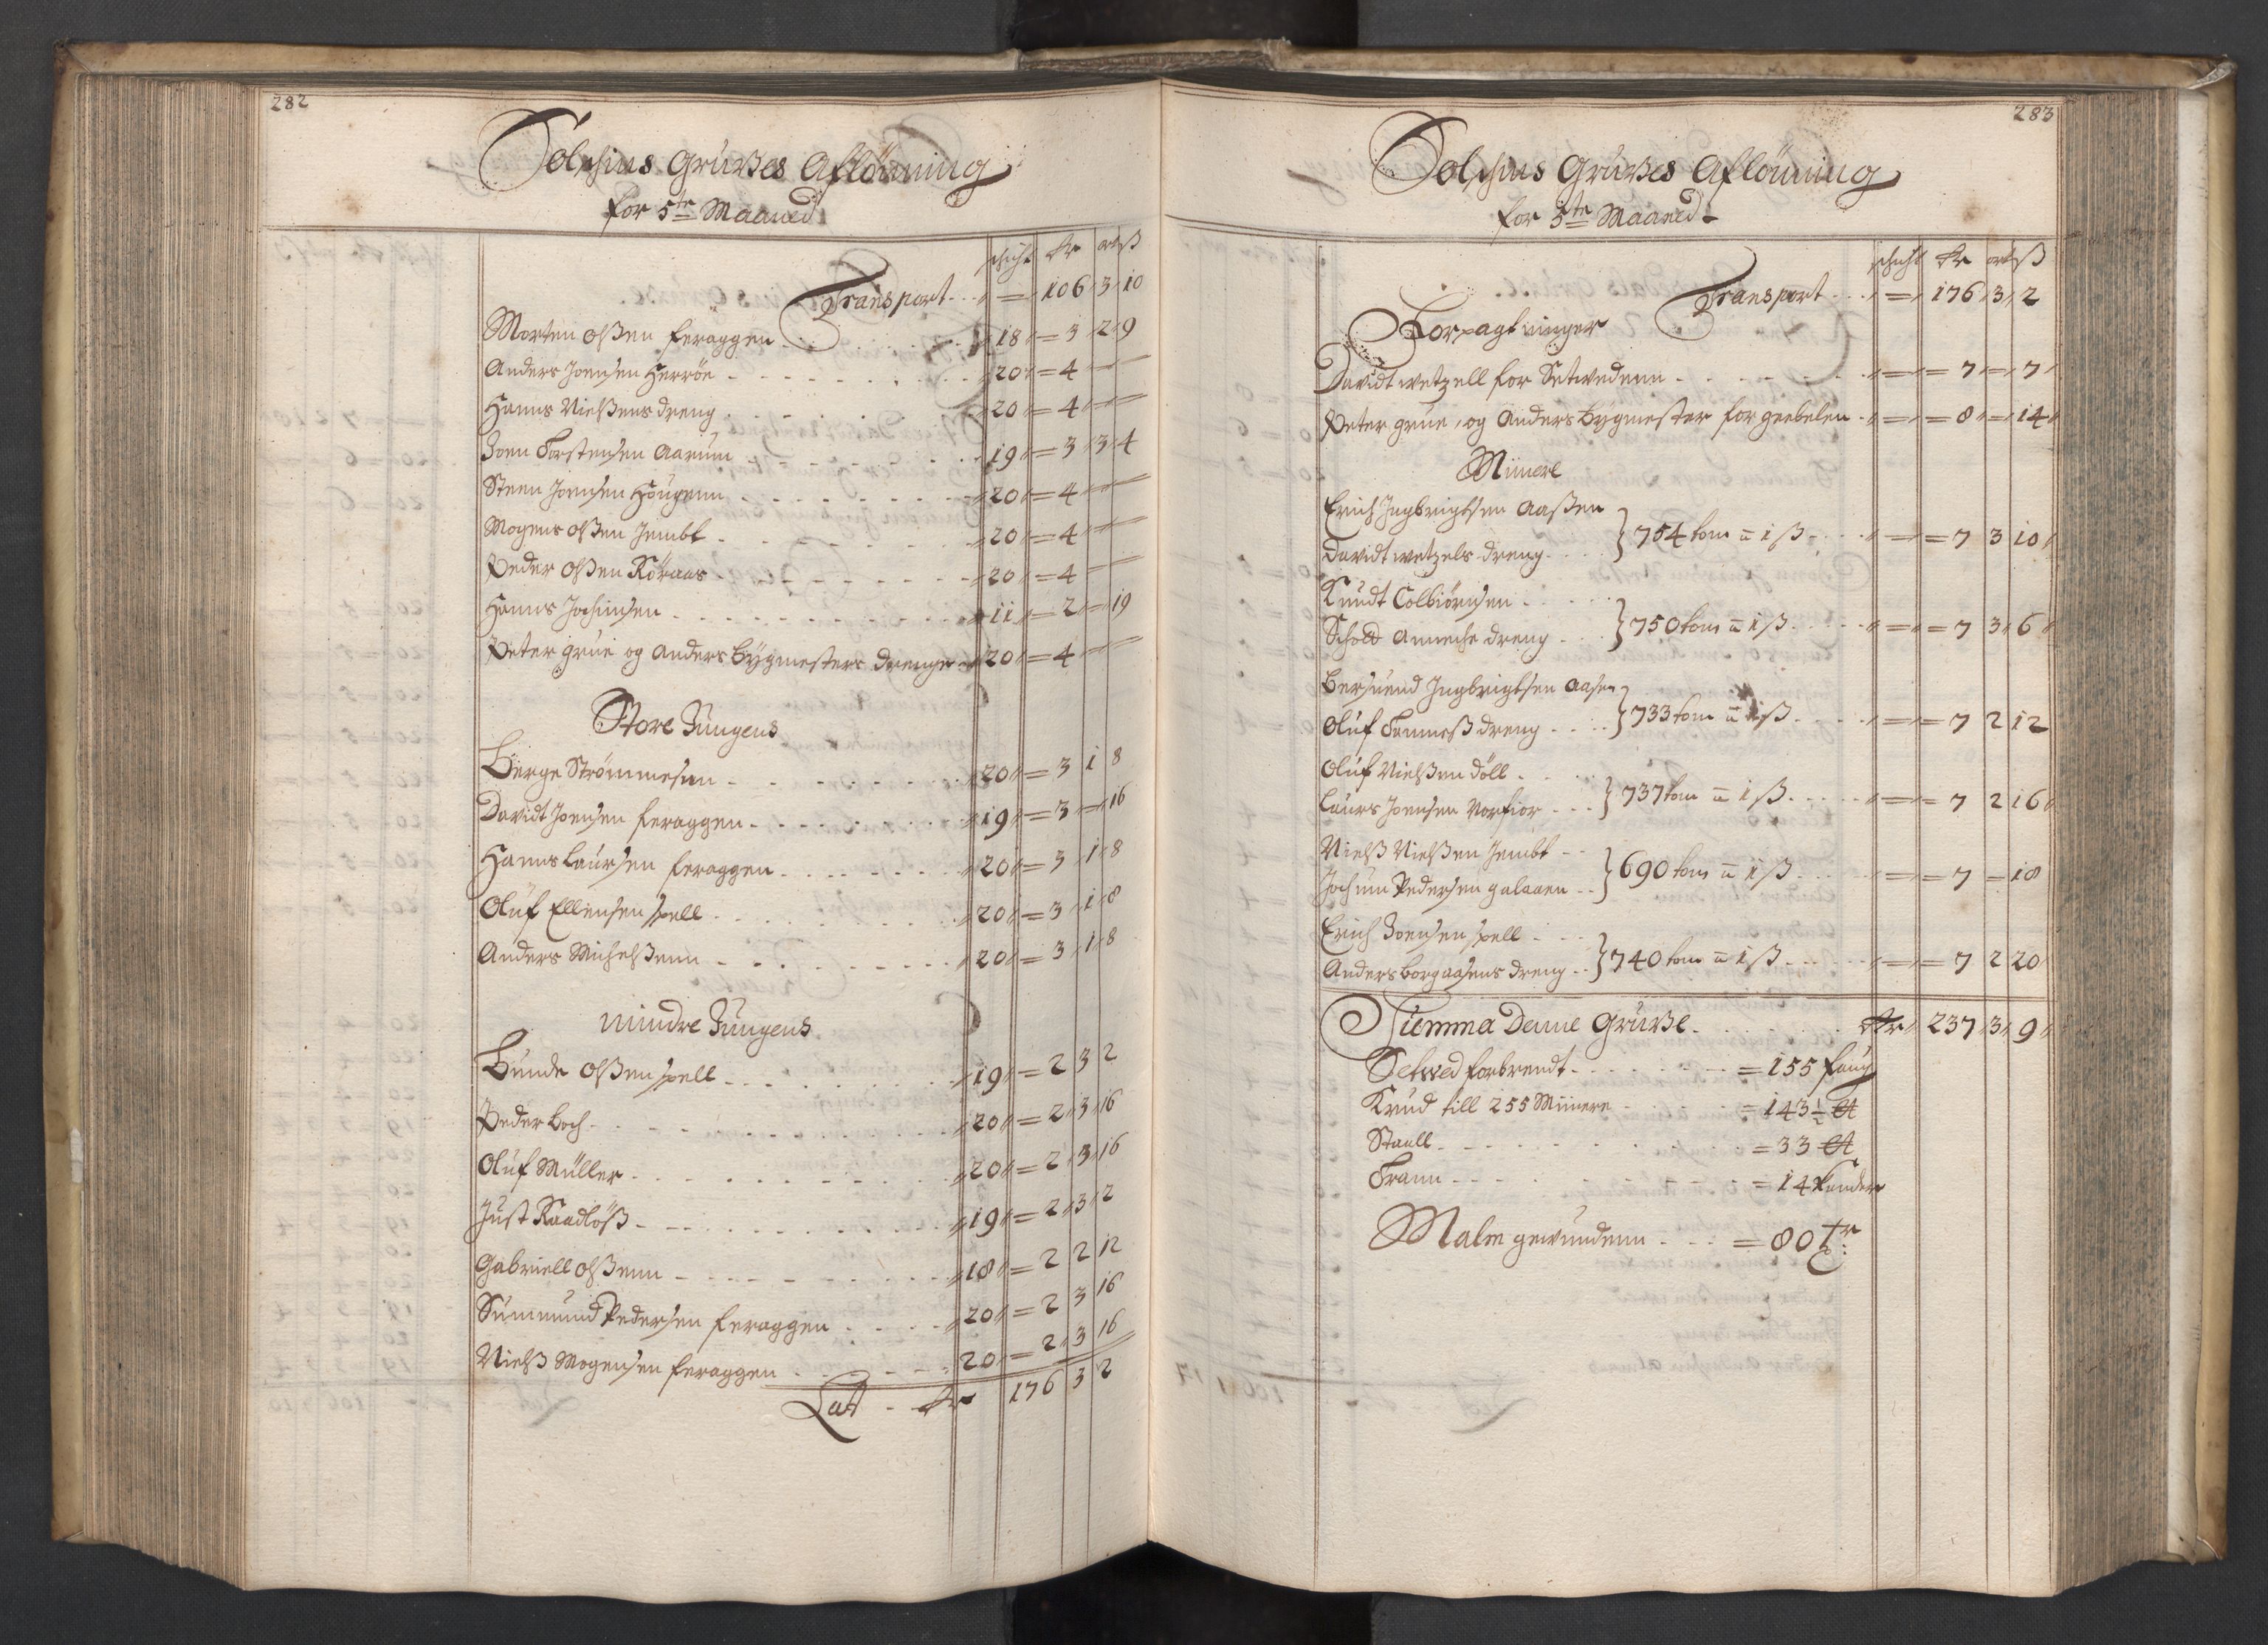 282
Solskins Grubes Aflönning
for 5te Maaned
schicht Rr ort ß
Transport - - - = 106 3 10
Morten Olßen feraggen - - - 18 = 3 2 9
Anders Joensen Herröe - - - 20 = 4 - -
Hanns Nielßens dreng - - - 20 = 4 - -
Joen Torstensen Aarum - - - 19 = 3 3 4
Steen Joensen Hougenn - - - 20 = 4 - -
Mogens Olßen Jembt - - - 20 = 4 - -
Peder Olßen Röraas - - - 20 = 4 - -
Hanns Jochimsen - - - 11 = 2 - 19
Peter grüe og Anders Bÿgmesters drenge - 20 = 4 - -
Store Jungens
Börge Strömmesen - - - 20 = 3 1 8
Davidt Joensen feraggen - - - 19 = 3 - 16
Hanns Laursen feraggen - - - 20 = 3 1 8
Oluf Ellensen spell - - - 20 = 3 1 8
Anders Michelßenn - - - 20 = 3 1 8
mindre Jungens
Bunde Olßen spell - - - 19 = 2 3 2
Peder Boch - - - 20 = 2 3 16
Oluf Müller - - - 20 = 2 3 16
Just Raadlöß - - - 19 = 2 3 2
Gabriell Olßenn - - - 18 = 2 2 12
Summund Pedersen feraggen - - - 20 = 2 3 16
Nielß Mogensen feraggen - - - 20 = 2 3 16
Lat - Rr 176 3 2
283
Solskins Grubes Aflönning
for 5te Maaned
schicht Rr ort ß
Transport - - - = 176 3 2
Forpagtninger
Davidt wetzell for Setwedenn - - - = = 7 - 7
Peter grüe, og Anders Bÿgmester for geebelen - = = 8 - 14
Minere
Erich Ingbrigtsen Aaßen
Davidt wetzels dreng - - } 754 tom a 1 ß - - = = 7 3 10
Knudt Colbiörnsen - -
Schold Anneche dreng - - } 750 tom a 1 ß - - = = 7 3 6
Bersuend Ingbrigtsen Aasen
Oluf Tommeß dreng - - } 733 tom a 1 ß - - = = 7 2 12
Oluf Nielßen döll - -
Laurs Joensen Norfior - - } 737 tom a 1 ß - - = = 7 2 16
Nielß Nielßen Jembt - -
Jochum Pedersen galaaen - - } 690 tom a 1 ß - - = = 7 - 18
Erich Joensen spell - -
Anders Borgaasens dreng - - } 740 tom a 1 ß - - = = 7 2 20
Summa Denne Grube - - - Rr 237 3 9
Setwed forbrendt - - - = 155 faug
Krud till 255 Minere - - - = 143 ½ ℔
Staall - - - = 33 ℔
Trann - - - = 14 Kander
Malm gewundenn - - - = 80 Tr: